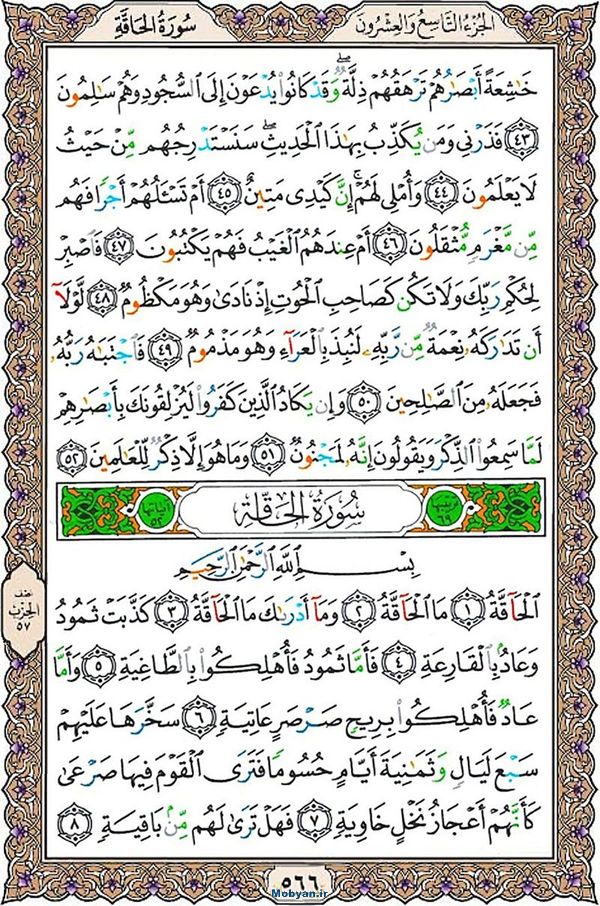 الجُزءُ التَّاسِعُ وَالعِشرُونَ
سُورَةُ الحَاقَّةِ
خَٰشِعَةً أَبْصَٰرُهُمْ تَرْهَقُهُمْ ذِلَّةٌ ۖ وَقَدْ كَانُوا۟ يُدْعَوْنَ إِلَى ٱلسُّجُودِ وَهُمْ سَٰلِمُونَ
﴿٤٣﴾ فَذَرْنِى وَمَن يُكَذِّبُ بِهَٰذَا ٱلْحَدِيثِ ۖ سَنَسْتَدْرِجُهُم مِّنْ حَيْثُ
لَا يَعْلَمُونَ ﴿٤٤﴾ وَأُمْلِى لَهُمْ ۚ إِنَّ كَيْدِى مَتِينٌ ﴿٤٥﴾ أَمْ تَسْـَٔلُهُمْ أَجْرًا فَهُم
مِّن مَّغْرَمٍ مُّثْقَلُونَ ﴿٤٦﴾ أَمْ عِندَهُمُ ٱلْغَيْبُ فَهُمْ يَكْتُبُونَ ﴿٤٧﴾ فَٱصْبِرْ
لِحُكْمِ رَبِّكَ وَلَا تَكُن كَصَاحِبِ ٱلْحُوتِ إِذْ نَادَىٰ وَهُوَ مَكْظُومٌ ﴿٤٨﴾ لَّوْلَآ
أَن تَدَٰرَكَهُۥ نِعْمَةٌ مِّن رَّبِّهِۦ لَنُبِذَ بِٱلْعَرَآءِ وَهُوَ مَذْمُومٌ ﴿٤٩﴾ فَٱجْتَبَٰهُ رَبُّهُۥ
فَجَعَلَهُۥ مِنَ ٱلصَّٰلِحِينَ ﴿٥٠﴾ وَإِن يَكَادُ ٱلَّذِينَ كَفَرُوا۟ لَيُزْلِقُونَكَ بِأَبْصَٰرِهِمْ
لَمَّا سَمِعُوا۟ ٱلذِّكْرَ وَيَقُولُونَ إِنَّهُۥ لَمَجْنُونٌ ﴿٥١﴾ وَمَا هُوَ إِلَّا ذِكْرٌ لِّلْعَٰلَمِينَ ﴿٥٢﴾
ترتيبها ٦٩
سُورَةُ الحَاقَّةِ
آياتها ٥٢
بِسْمِ ٱللَّهِ ٱلرَّحْمَٰنِ ٱلرَّحِيمِ
ٱلْحَآقَّةُ ﴿١﴾ مَا ٱلْحَآقَّةُ ﴿٢﴾ وَمَآ أَدْرَىٰكَ مَا ٱلْحَآقَّةُ ﴿٣﴾ كَذَّبَتْ ثَمُودُ
وَعَادٌۢ بِٱلْقَارِعَةِ ﴿٤﴾ فَأَمَّا ثَمُودُ فَأُهْلِكُوا۟ بِٱلطَّاغِيَةِ ﴿٥﴾ وَأَمَّا
عَادٌ فَأُهْلِكُوا۟ بِرِيحٍ صَرْصَرٍ عَاتِيَةٍ ﴿٦﴾ سَخَّرَهَا عَلَيْهِمْ
سَبْعَ لَيَالٍ وَثَمَٰنِيَةَ أَيَّامٍ حُسُومًا فَتَرَى ٱلْقَوْمَ فِيهَا صَرْعَىٰ
كَأَنَّهُمْ أَعْجَازُ نَخْلٍ خَاوِيَةٍ ﴿٧﴾ فَهَلْ تَرَىٰ لَهُم مِّنۢ بَاقِيَةٍ ﴿٨﴾
نصف
الحزب
٥٧
٥٦٦
Mobyan.ir